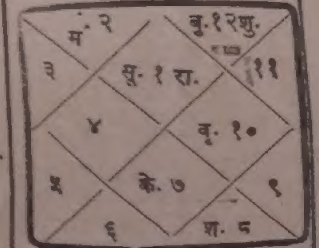 मं. २ बु. १२ शु.
३ सू. १ रा. ११
४ वृ. १०
५ के. ७ ९
६ श. ८